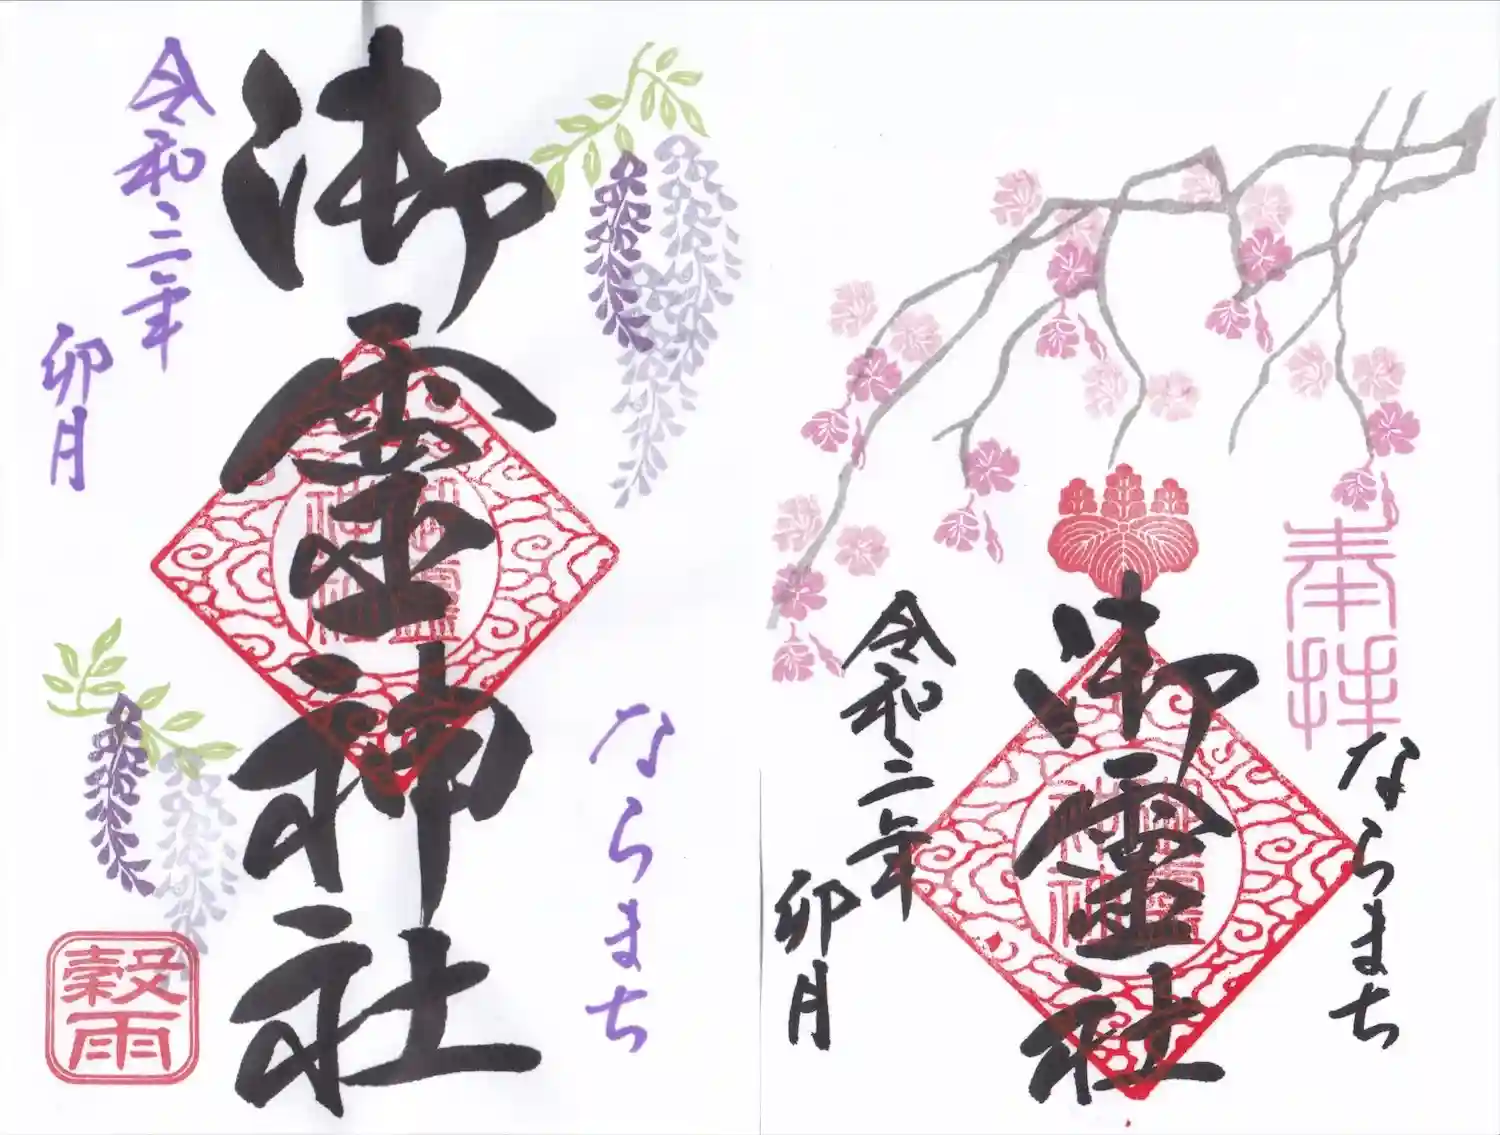 ならまち
御霊神社
令和二年
卯月
穀雨
奉拝
ならまち
御霊社
令和二年
卯月